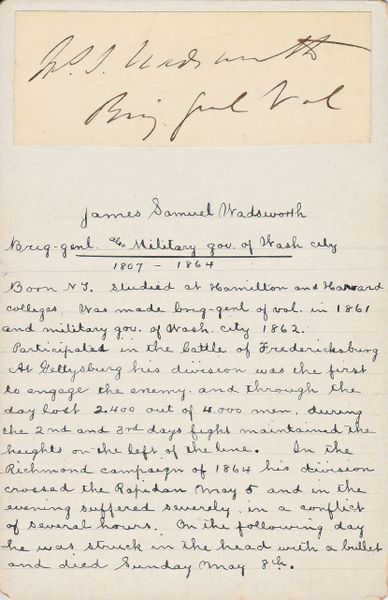 Jas. S. Wadsworth
Brig. Genl Vol
James Samuel Wadsworth
Brig-genl. also Military gov. of Wash city
1807 - 1864
Born N.Y. studied at Hamilton and Harvard
colleges. Was made brig-genl of vol. in 1861
and military gov. of Wash. city 1862.
Participated in the battle of Fredericksburg
At Gettysburg his division was the first
to engage the enemy. and through the
day lost 2.400 out of 4.000 men. during
the 2nd and 3rd days fight maintained the
heights on the left of the line. In the
Richmond campaign of 1864 his division
crossed the Rapidan May 5 and in the
evening suffered severely in a conflict
of several hours. On the following day
he was struck in the head with a bullet
and died Sunday May 8th.